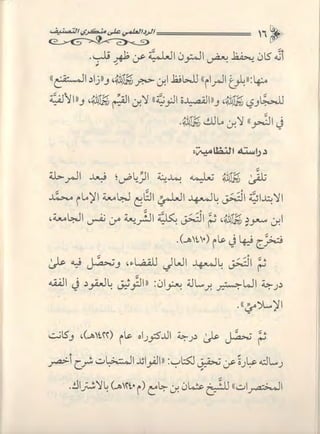 ١٦ الرد العلمي على منكري التصنيف
أنه كان يحفظ بعض المتون العلمية عن ظهر قلب.
منها: «بلوغ المرام» للحافظ ابن حجر رحمه الله، و«زاد المستقنع»
للحجاوي رحمه الله، و«القصيدة النونية» لابن القيم رحمه الله، و«الألفية
في النحو» لابن مالك رحمه الله.
دراسته النظامية:
تلقى رحمه الله تعليمه بمدينة الرياض؛ فبعد المرحلة
الابتدائية التحق بالمعهد العلمي التابع لجامعة الإمام محمد
ابن سعود رحمه الله، ثم التحق بكلية الشريعة من نفس الجامعة،
فتخرج فيها في عام (١٤١٠هـ).
ثم التحق بالمعهد العالي للقضاء، وتحصل فيه على
درجة الماجستير برسالة بعنوان: «التوثيق بالعقود في الفقه
الإسلامي».
ثم تحصل على درجة الدكتوراه عام (١٤٢٢هـ)، وكانت
رسالته عبارة عن تحقيق لكتاب: «الفوائد المنتخبات شرح أخصر
المختصرات» للشيخ عثمان بن جامع (م ١٢٤٠هـ) بالاشتراك.